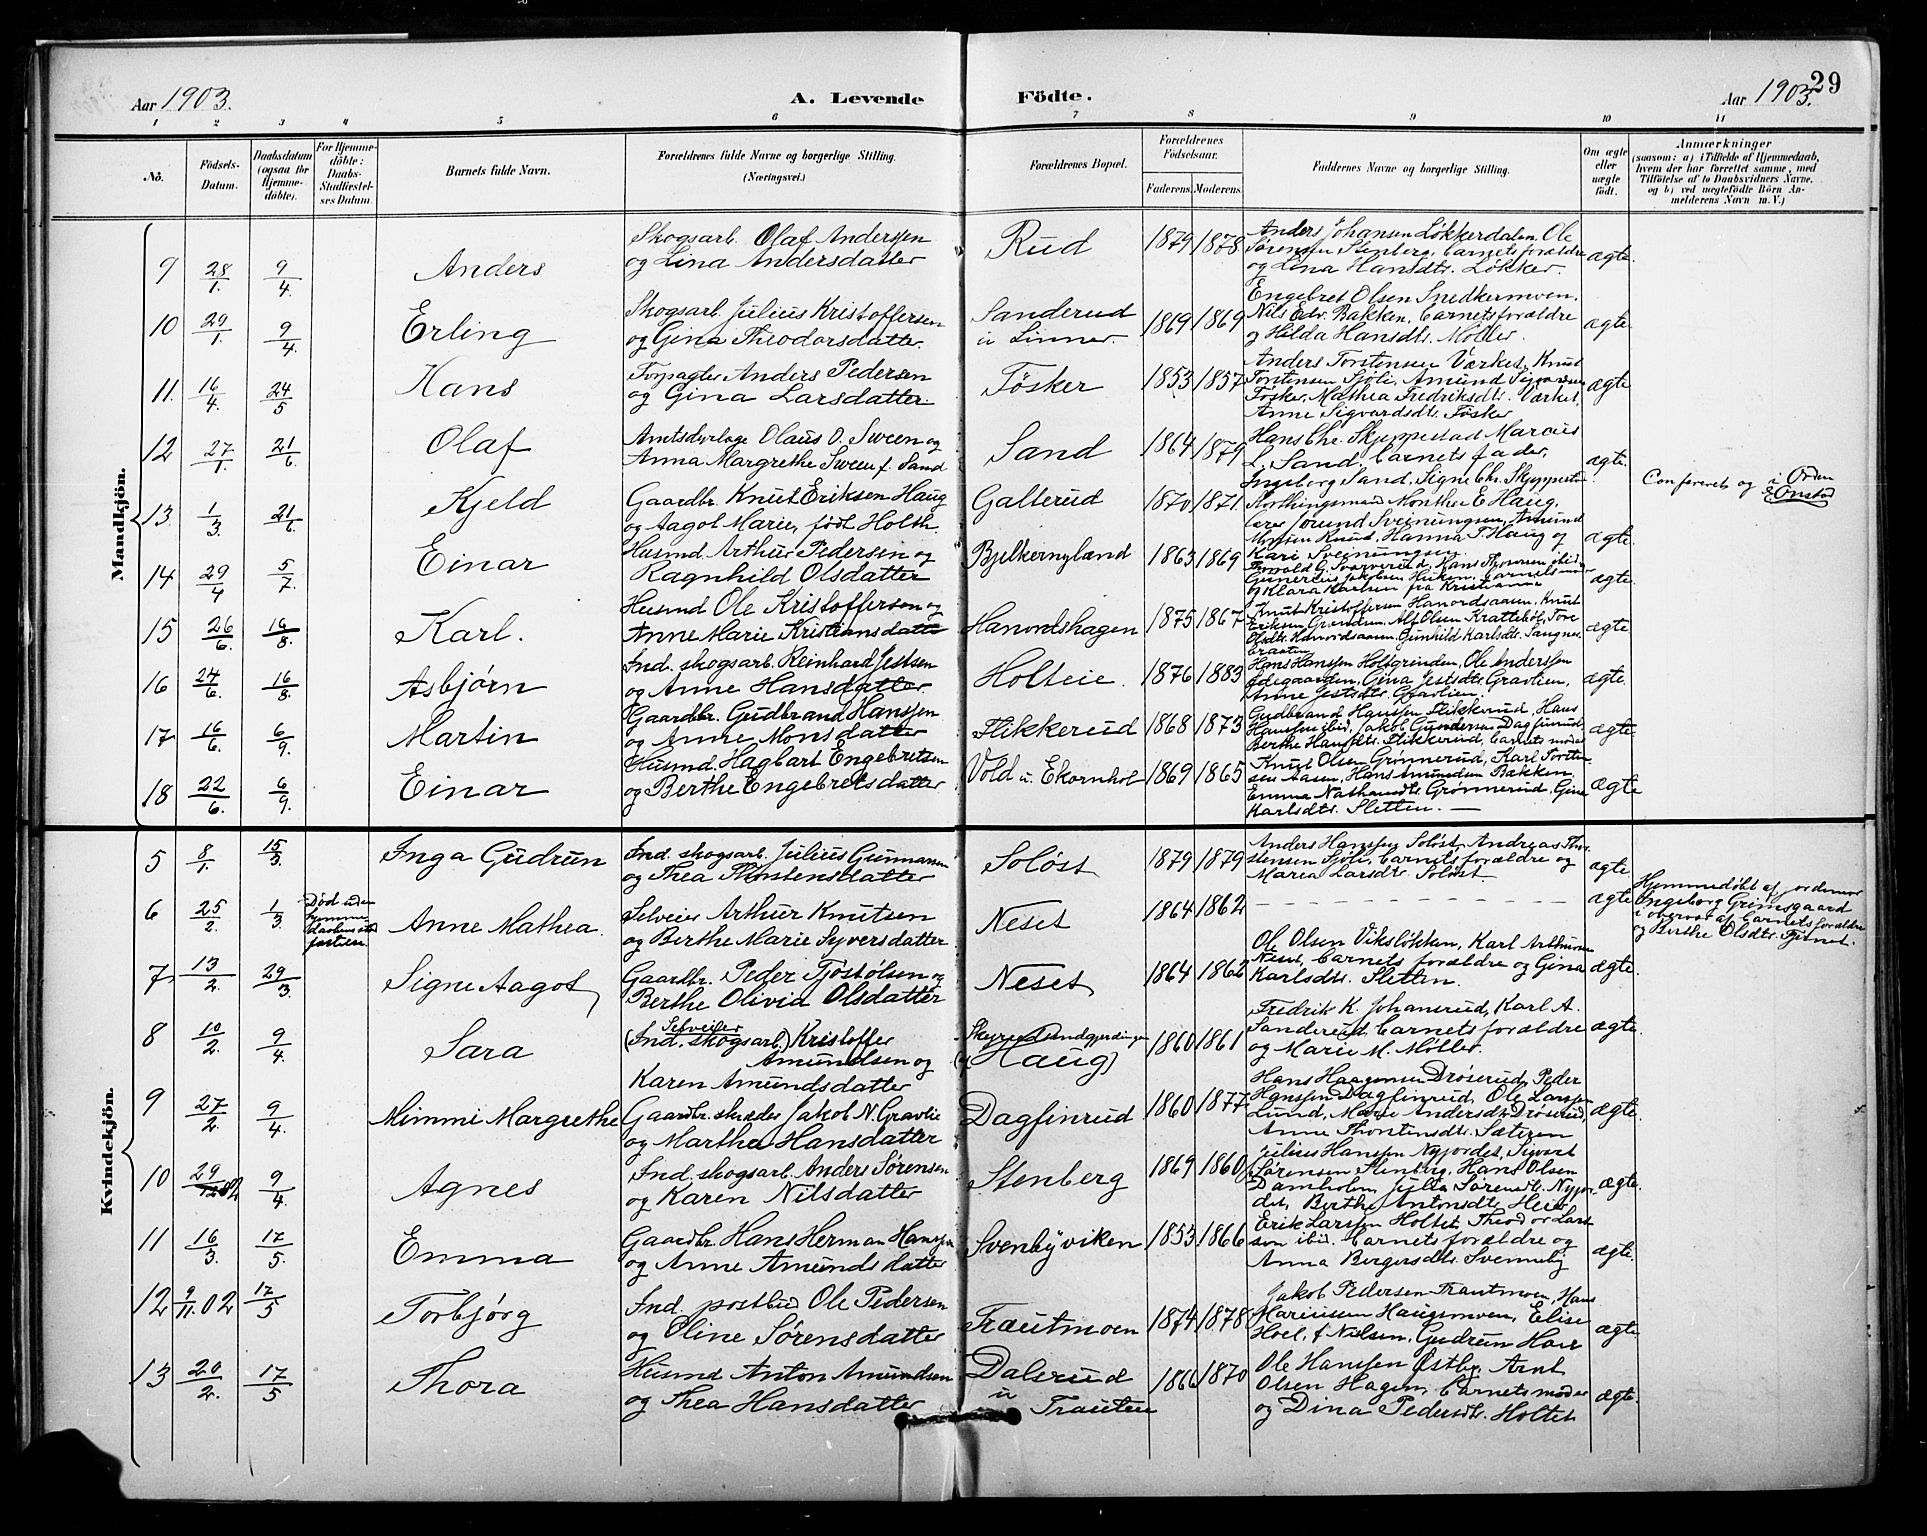 Aar 1903. A. Levende Födte. Aar 1903. 29
1 2 3 4 5 6 7 8 9 10 11
No. Födsels-Datum. Daabsdatum (ogsaa for Hjemme-döbte). For Hjemme-döbte: Daabs-Stadfæstelses Datum. Barnets fulde Navn. Forældrenes fulde Navne og borgerlige Stilling. (Næringsvei.) Forældrenes Bopæl. Forældrenes Födselsaar. Faderens. Moderens. Faddernes Navne og borgerlige Stilling. Om ægte eller uægte født. Anmærkninger (saasom: a) i Tilfælde af Hjemmedaab, hvem der har forrettet samme, med Tilföielse af to Daabsvidners Navne, og b) ved uægtefödte Börn Anmelderens Navn m. V.)
Mandkjön.
9 28/1. 9/4. Anders Skogsarb. Olaf Anderssen og Lina Andersdatter Rud 1879 1878 Anders Johansen Løkkerdalen, Ole Sørensen Stenberg, barnets forældre og Lina Hansdtr. Løkker. ægte.
10 29/1. 9/4. Erling Skogsarb. Julius Kristoffersen og Gina Theodorsdatter. Sanderud u Linner. 1869 1869 Engebret Olsen Snedkermoen, Nils Edv. Bakken, barnets forældre og Hilda Hansdtr. Møller. ægte.
11. 16/4. 24/5 Hans Forpagter Anders Pedersen og Gina Larsdatter. Fösker 1853 1857 Anders Torstensen Værket, Knut Torstensen Sjöli, Amund Fösker, Mathea Fredriksdtr. Værket, Anne Sigvardsdtr. Fösker ægte
12 27/1. 21/6 Olaf Amtsdyrlæge Olaus O. Sween og Anna Margrethe Sween f. Sand Sand 1864 1879 Hans Chr. Skjeppestad Marcus L. Sand, barnets fader, Ingeborg Sand, Signe Chr. Skjeppestad ægte.
13. 1/3. 21/6 Kjeld Gaardbr. Knut Eriksen Haug og Aagot Marie, födt Holth. Galterud 1870 1871 Storthingsmand E Haug, lærer Jørund Sveinungsen, Amund Knud, Hanna T. Haug og Kari Sveinungsen ægte. Confereret og i Orden E Onstad
14 29/4 5/7. Einar Husmd. Arthur Pedersen og Ragnhild Olsdatter Bjelkernyland 1863 1869 og Klara Karlsen fra Kristiania ægte
15 26/6. 16/8. Karl. Husmd Ole Kristoffersen og Anne Marie Kristiansdatter Hanordshagen 1875 1867 Knut Kristoffersen Hanordsaasen, Knut Eriksen Grinden, Alf Olsen Krattebøl, Tore Olsdtr. Hanordsaasen, Gunhild Karlsdtr. ægte
16 24/6. 16/8. Asbjørn Ind. skogsarb. Reinhard Jestsen og Anne Hansdatter. Holteie. 1876 1883 Hans Hanssen Holtgrinden, Ole Anderssen Ødegaarden, Gina Jestsdtr. Gravlien, Anne Jestsdtr. Gravlien. ægte.
17 16/6. 6/9. Martin Gaardbr. Gudbrand Hanssen og Anne Monsdatter Flikkerud 1868 1873 Gudbrand Hanssen Flikkerud, Hans Hanssen ibid, Jakob Gundersen Dagfinrud Berthe Hansdtr. Flikkerud, barnets moder ægte
18 22/6. 6/9. Einar Husmd. Hagbart Engebretsen og Berthe Engebretsdatter Vold u. Ekornhol 1869 1865 Knut Olsen Grønnerud, Karl Torstensen Aasen, Hans Amundsen Bakken, Emma Nathansdtr. Grønnerud, Gina Karlsdtr. Sletten. ægte
Kvindekjön.
5 8/1. 15/3. Inga Gudrun Ind. skogsarb. Julius Gunnarsen og Thea Thorstensdatter Soløst 1879 1879 Anders Hanssen Soløst, Andreas Thorstensen Sjöli, barnets forældre og Maren Larsdtr. Soløst. ægte
6 25/2. 1/3. Død uden hjemmedaabens stadfæstelse Anne Mathea. Selveier Arthur Knutsen og Berthe Marie Syversdatter Neset 1864 1862 ægte Hjemmedøbt af jordemor Ingeborg Grimsgaard i overvær af barnets forældre og Berthe Olsdtr. Tjernet.
7 13/2. 29/3. Signe Aagot Gaardbr. Peder Tjostolsen og Berthe Olivia Olsdatter Neset 1864 1862 Ole Olsen Viksløkken, Karl Arthursen Neset, barnets forældre og Gina Karlsdtr. Sletten. ægte.
8 10/2. 9/4. Sara (Ind. skogsarb.) Selveier Kristoffer Amundsen og Karen Amundsdatter Haug) 1860 1861 Fredrik K. Johansrud, Karl A. Sanderud, barnets forældre og Marie M. Møller. ægte.
9 27/2. 9/4. Mimmi Margrethe Gaardbr. skræder Jakob N. Gravlie og Marthe Hansdatter Dagfinrud 1860 1877 Hans Haagensen Drøserud, Peder Hanssen Dagfinrud, Ole Larssen Lund, Marie Andersdtr. Drøserud, Anne Thorstensdtr. Sæteren ægte.
10 29/12 02 9/4. Agnes Ind. skogsarb. Anders Sørensen og Karen Nilsdatter Stenberg 1869 1860 Julius Hanssen Nyjordet, Sigvart Sørensen Stenberg, Hans Olsen Damholen, Julia Sørensdtr. Nyjordet, Berthe Antonsdtr. Heier ægte.
11 16/3. 17/5. Emma Gaardbr. Hans Herman Hanssen og Anne Amundsdatter Svenbyviken 1853 1866 Erik Larssen Holtet, Theodor Larssen ibid. barnets forældre og Anna Bergersdtr. Svenneby ægte.
12 9/11. 02 17/5 Torbjørg Ind. postbud Ole Pedersen og Oline Sørensdatter Trautmoen 1874 1878 Jakob Pedersen Trautmoen, Hans Mariusen Haugsmoen, Elise Hoel, f. Nielsen, Gudrun Hoel ægte
13 20/2. 17/5 Thora Husmd Anton Amundsen og Thea Hansdatter Dalsrud u Trauten 1866 1870 Ole Hanssen Østby, Arnt Olsen Hagen, barnets moder og Dina Pedersdtr. Holtet ægte.